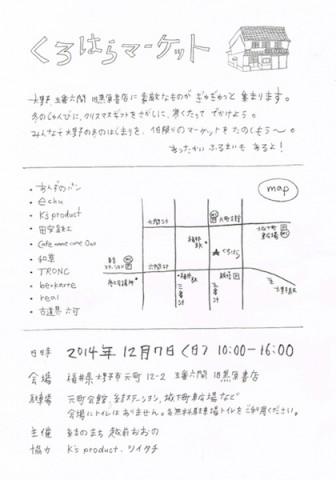 くろはらマーケット
大野 五番六間 旧黒原書店に素敵なものが ぎゅぎゅっと 集まります。
冬のじゅんびに、クリスマスギフトをさがしに、寒くたって でかけよう。
みんなで 大野の冬のはじまりを、1日限りのマーケットをたのしもう〜。
あったかい ふるまいも あるよ！
map
・echu
・K's product
・田中鉄工
・和草
・TRONC
・real
・古道具 六可
六間通り
日時 2014年 12月7日(日) 10:00-16:00
会場 福井県大野市元町12-2 五番六間 旧黒原書店
駐車場 元町会館、結ステーション、城下町東広場 など
会場にトイレはありません。各無料駐車場トイレをご利用ください。
主催 結のまち 越前おおの
協力 K's product. ツイクチ